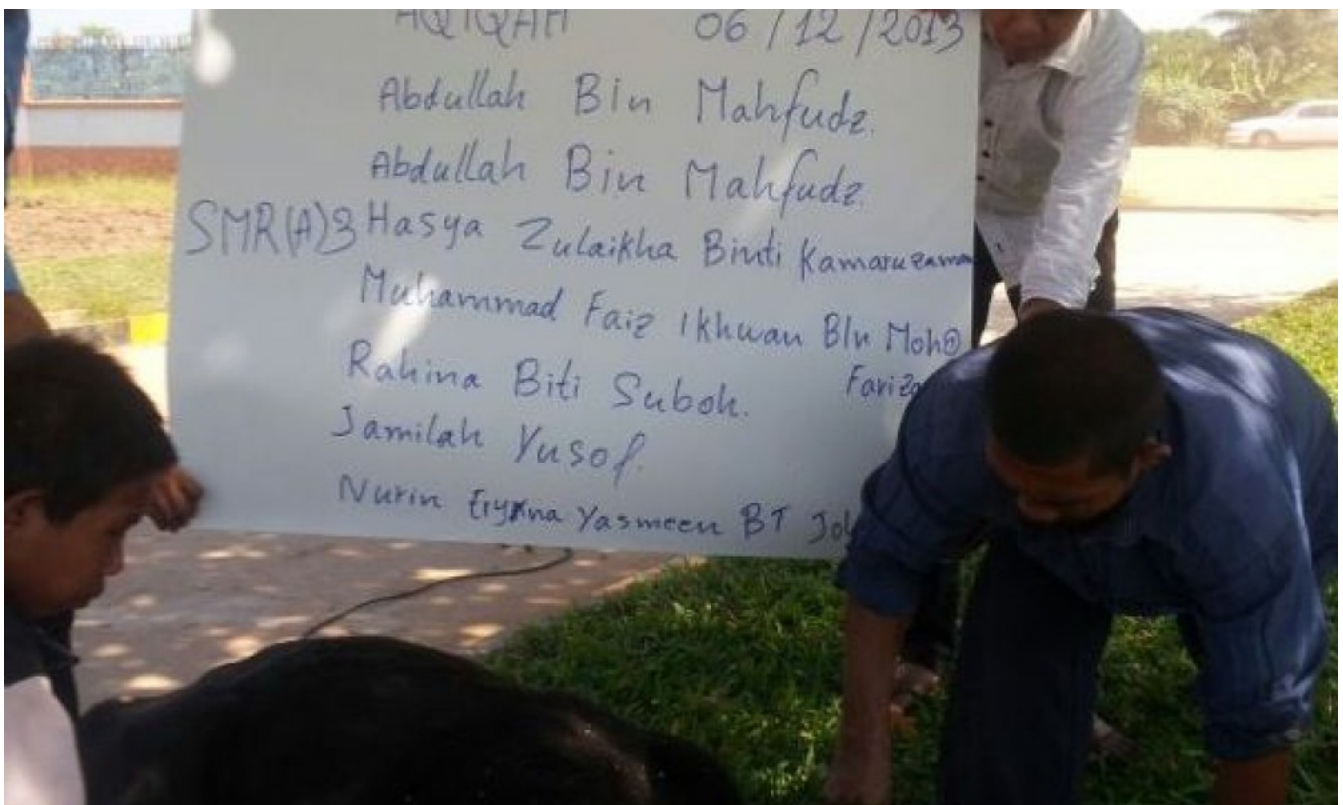 AQIQAH 06/12/2013
Abdullah Bin Mahfudz.
Abdullah Bin Mahfudz.
SMR(A)3 Hasya Zulaikha Binti Kamaruzama
Muhammad Faiz Ikhwan BIn Moh@
Fariza
Rahina Biti Suboh.
Jamilah Yusof.
Nurin Yasmeen BT